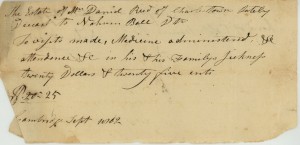 The Estate of Mr David Reed of Charlestown lately
to Nahum Ball Dr
To visits made, Medicine administered, &
attendance &C in his & his Family's Sickness
twenty Dollars & twenty five cents
20-25
Cambridge Sept